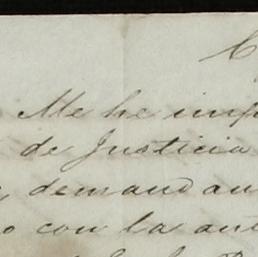 C
Me he imp
de Justicia
demandan
o con la ant